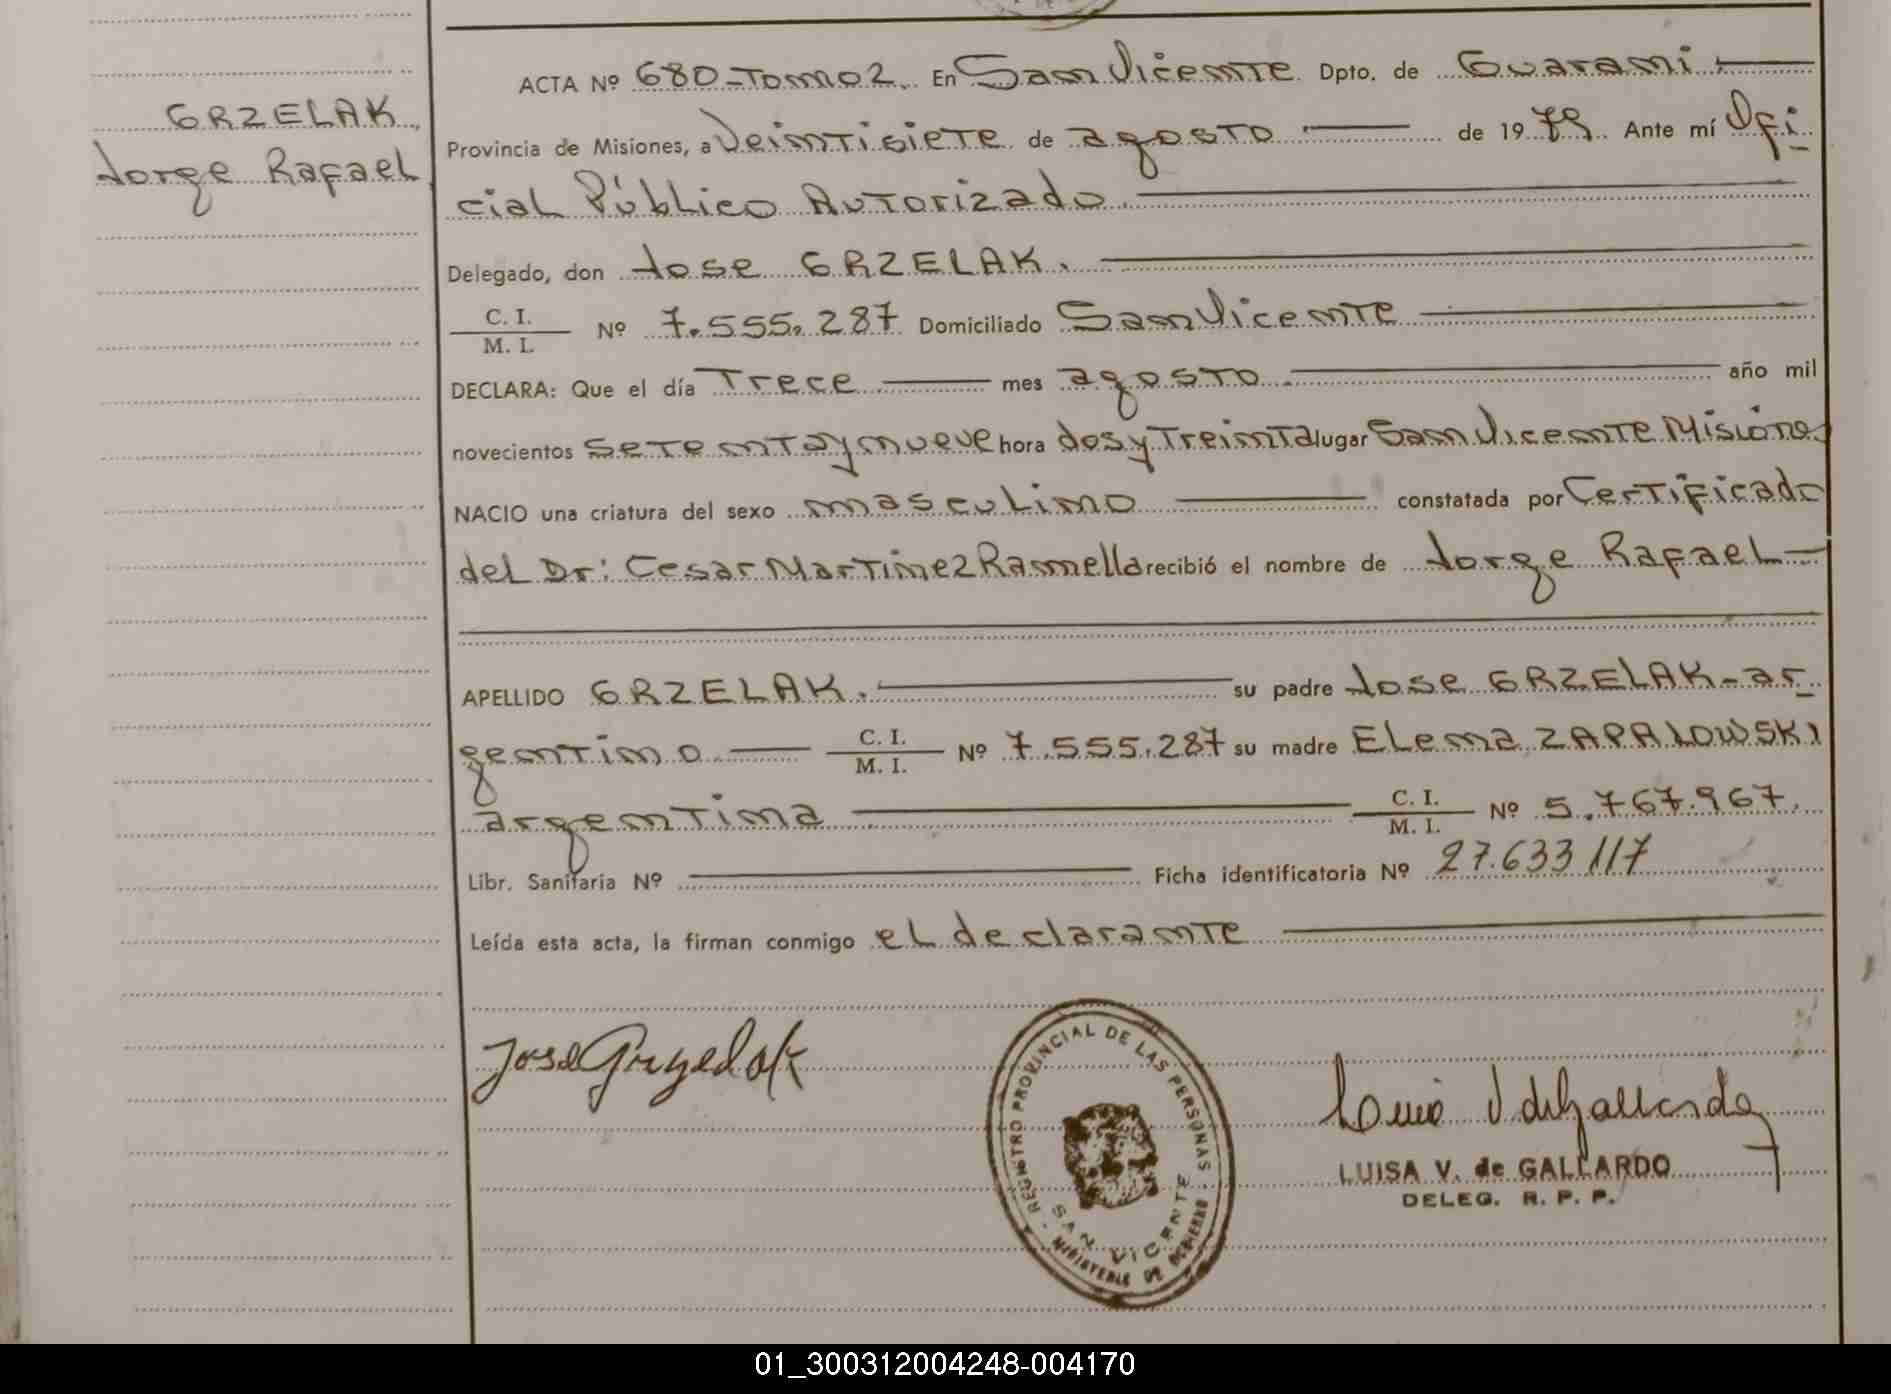 GRZELAK
Jorge Rafael
ACTA Nº 680-Tomo 2. En San Vicente Dpto. de Guarani.
Provincia de Misiones, a Veintisiete de agosto de 1979. Ante mí Ofi
cial Público Autorizado.
Delegado, don Jose GRZELAK.
C. I.
M. I. Nº 7.555.287 Domiciliado San Vicente
DECLARA: Que el día Trece mes agosto. año mil
novecientos setentaynueve hora dos y Treinta lugar San Vicente Misiones
NACIO una criatura del sexo masculino constatada por Certificado
del Dr: Cesar Martinez Ramella recibió el nombre de Jorge Rafael
APELLIDO GRZELAK. su padre Jose GRZELAK-ar
gentino C. I.
M. I. Nº 7.555.287 su madre Elena ZAPALOWSKI
argentina C. I.
M. I. Nº 5.767.967.
Libr. Sanitaria Nº Ficha identificatoria Nº 27.633117
Leída esta acta, la firman conmigo el declarante
Jose Grzelak
REGISTRO PROVINCIAL DE LAS PERSONAS
SAN VICENTE
MINISTERIO DE GOBIERNO
Luisa V de Gallardo
LUISA V. de GALLARDO
DELEG. R. P. P.
01_300312004248-004170